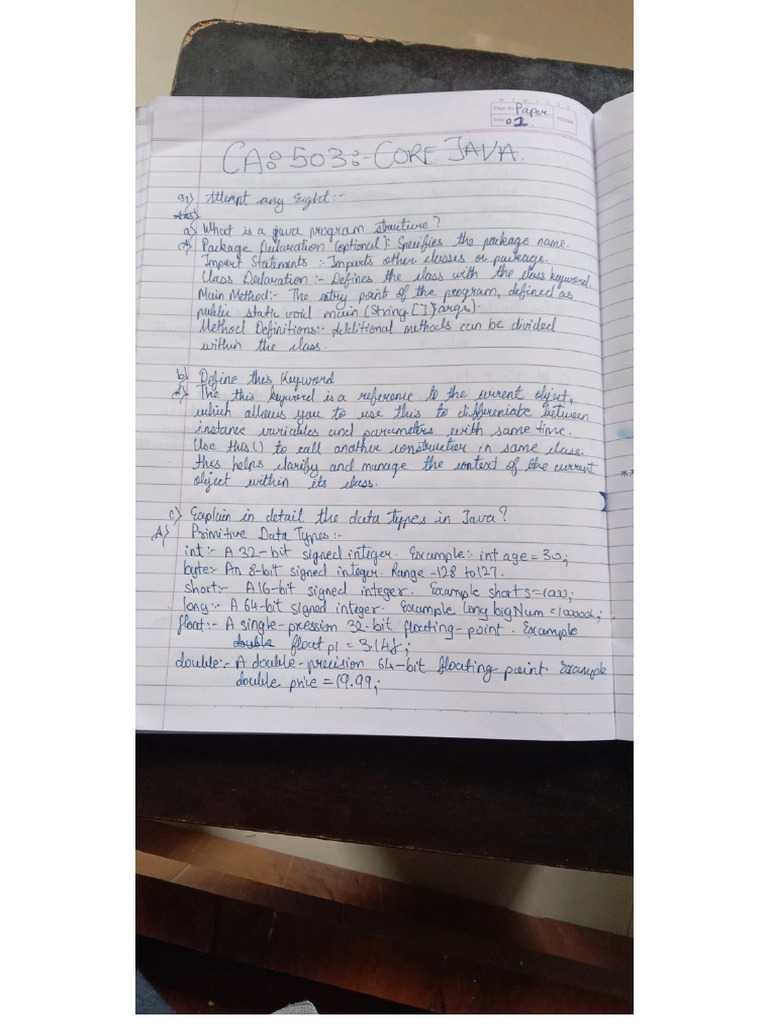 Page No. Paper
Date 01.
CA: 503:- CORE JAVA.
Q1) Attempt any Eight:-
Ans)
a) What is a java program structure?
A) Package Declaration (optional): Specifies the package name.
Import Statements :- Imports other classes or package.
Class Declaration :- Defines the class with the class keyword.
Main Method:- The entry point of the program, defined as
public static void main (String []args).
Method Definitions:- Additional methods can be divided
within the class.
b) Define this Keyword
A) The this keyword is a reference to the current object,
which allows you to use this to differeniate between
instance variables and parameters with same time.
Use this() to call another constructior in same class.
this helps clarify and manage the context of the current
object within its class.
c) Explain in detail the data types in Java?
A) Primitive Data Types:-
int:- A 32-bit signed integer. Example:- int age = 30;
byte:- An 8-bit signed integer. Range -128 to 127.
short:- A 16-bit signed integer. Example short s=1000;
long:- A 64-bit signed integer. Example long bigNum =
float:- A single-pression 32-bit floating-point. Example
double float pi = 3.14f;
double:- A double-precision 64-bit floating point Example
double price = 19.99;